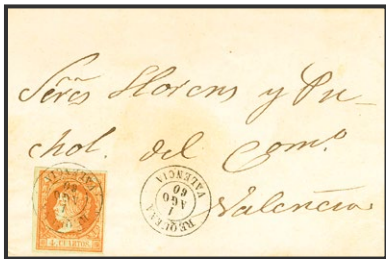 Señs Llorens y Pu-
chol. del Com.º
Valencia
REQUENA
1
AGO
60
VALENCIA
4 CUARTOS.